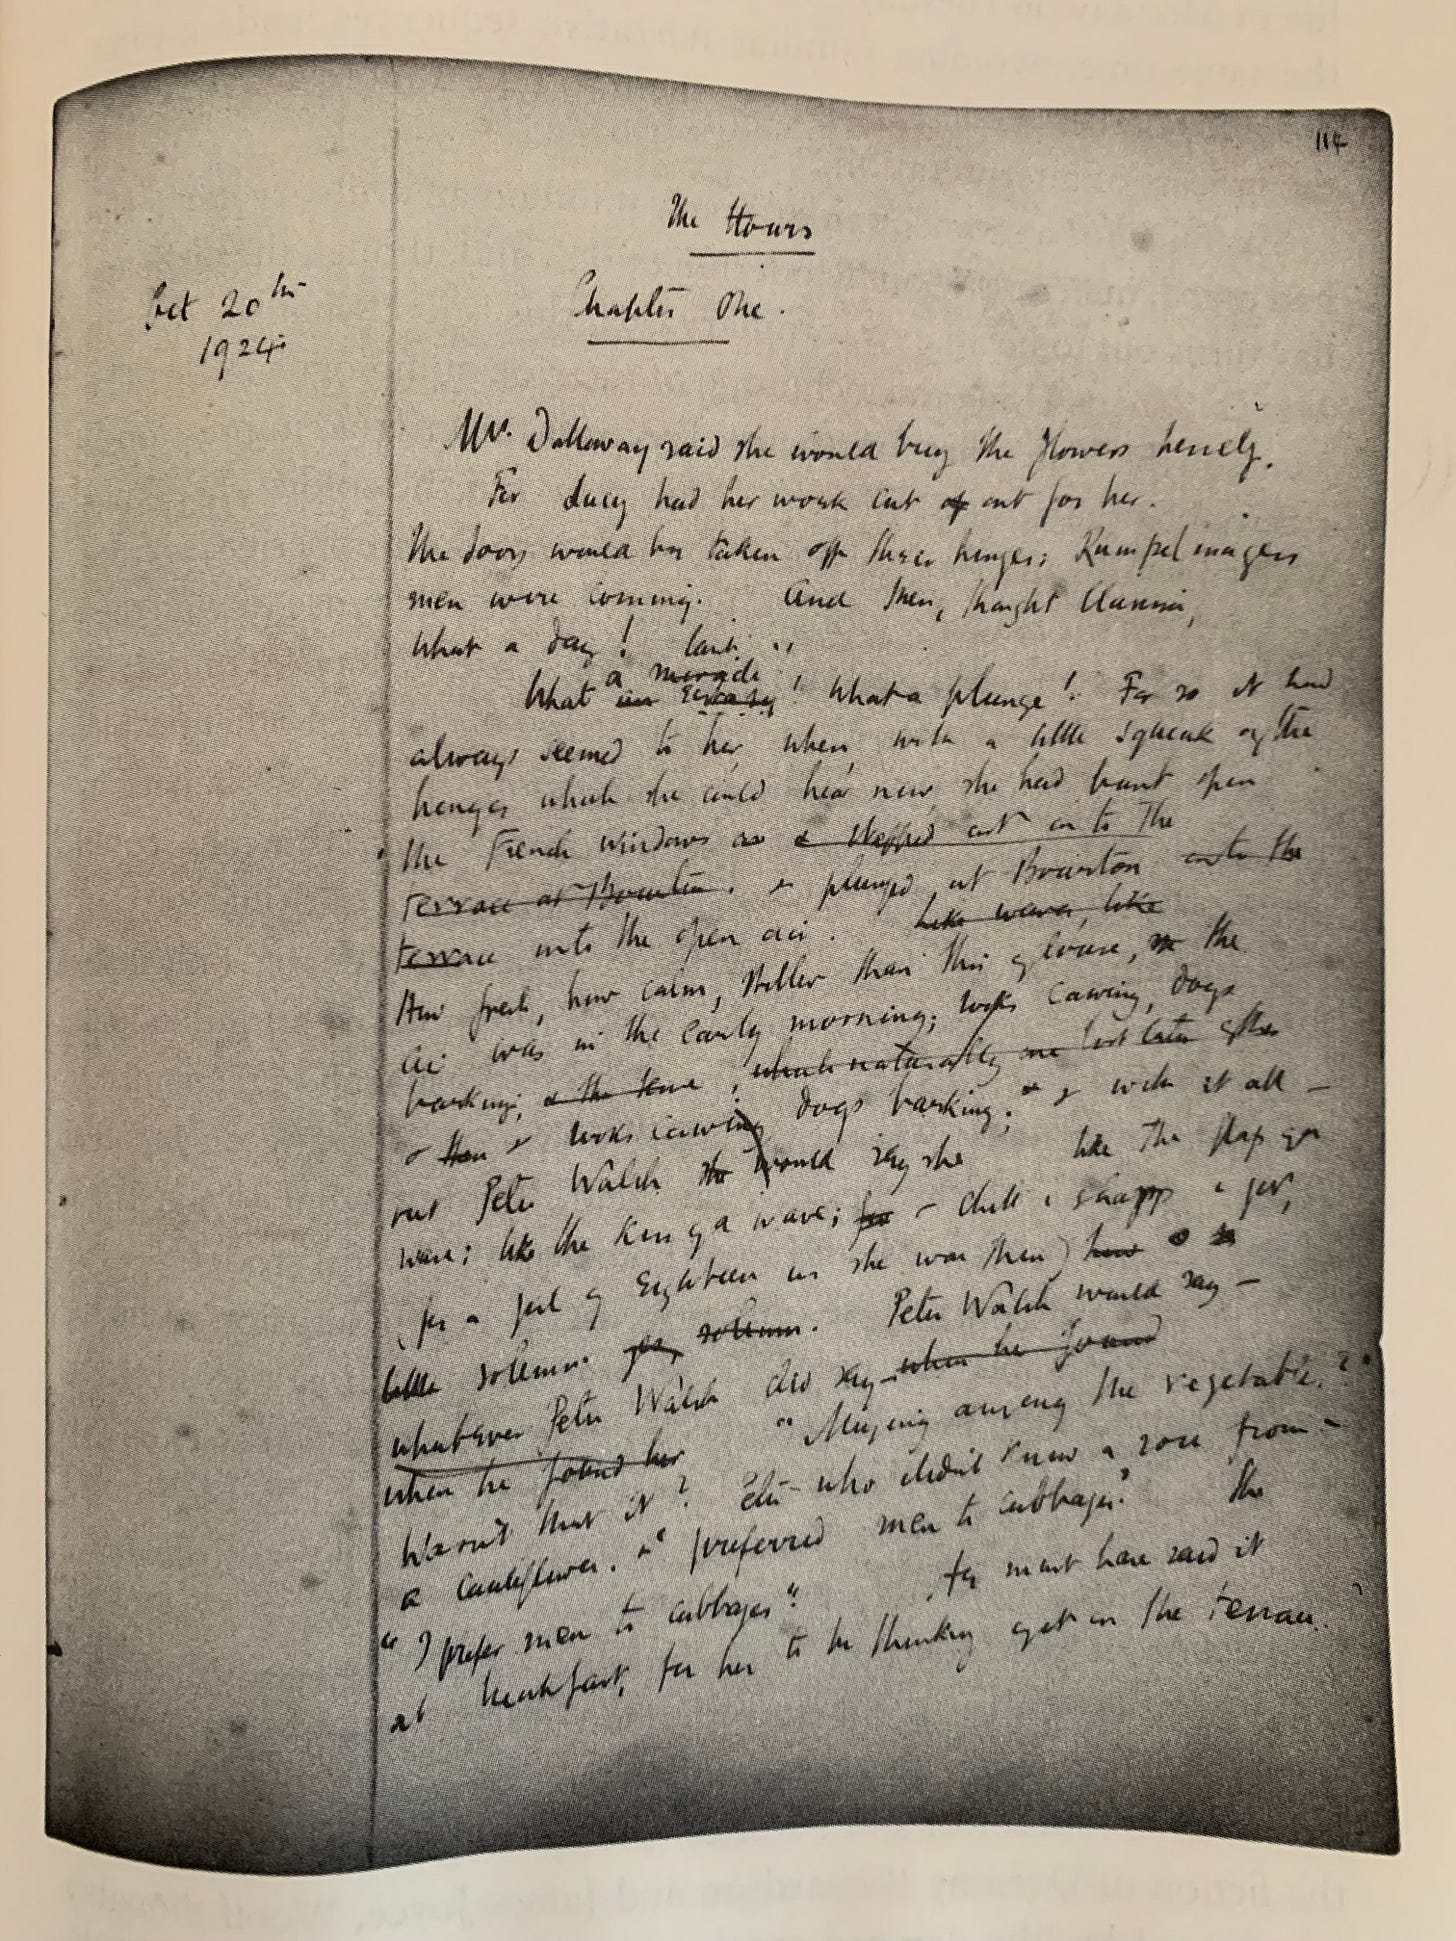 114
The Hours
Chapter One.
Oct 20th
1924
Mrs. Dalloway said she would buy the flowers herself.
For Lucy had her work cut of out for her.
The doors would be taken off their hinges; Rumpelmayers
men were coming. And then, thought Clarissa,
what a day!
a miracle
What an ecstasy! What a plunge! For so it had
always seemed to her, when, with a little squeak of the
hinges which she could hear now, she had burst open
the French windows & stepped out on to the
terrace at Bourton. & plunged at Bourton onto the
terrace into the open air. like waves, like
How fresh, how calm, stiller than this of course, the
air was in the early morning; rooks cawing, dogs
barking; & the , which naturally one lost later
rooks cawing dogs barking; & with it all —
Peter Walsh she would say she like the flap of a
wave; like the kiss of a wave; chill & sharp & yet,
(for a girl of eighteen as she was then) how
little solemn. solemn. Peter Walsh would say —
whatever Peter Walsh did say — when he found
when he found her "Musing among the vegetables?"
Wasn't that it? who didn't know a rose from —
a cauliflower. "preferred men to cabbages." He
"I prefer men to cabbages" He must have said it
at breakfast, for her to be thinking of it on the terrace.